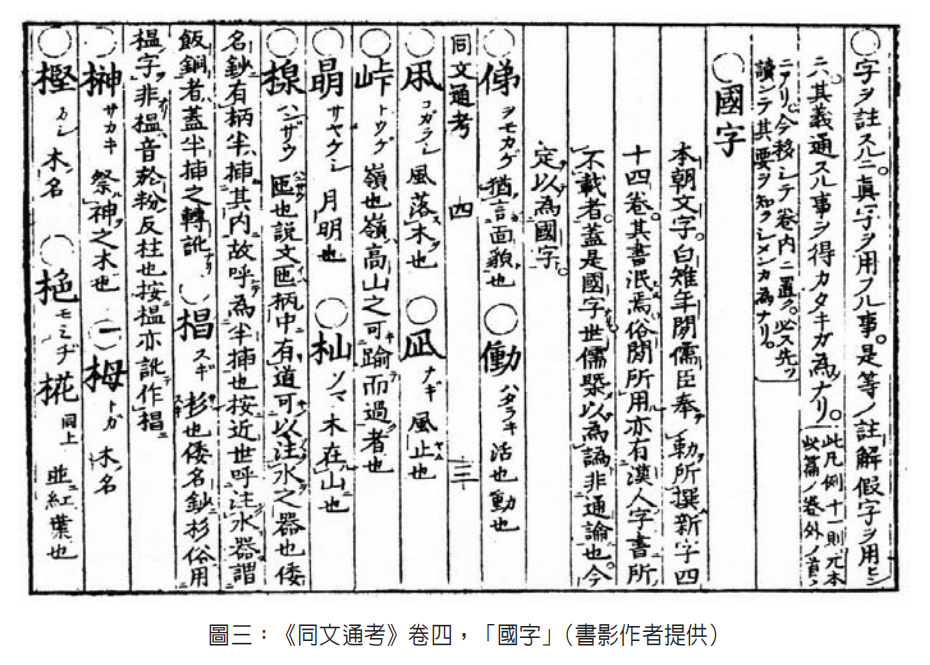 ○字ヲ註スルニ。真字ヲ用フル事。是等ノ註解假字ヲ用ヒン
ニハ。其義通スル事ヲ得カタキガ為ナリ。此凡例十一則元本此篇ノ巻外ノ首
ニアリ。今移シテ巻内ニ置ク。必ス先ツ
讀ンデ其要ヲ知ラシメンカ為ナリ。
○國字
本朝文字。白雉年間儒臣奉勅所撰新字四
十四卷。其書泯焉俗間所用亦有漢人字書所
不載者。蓋是國字世儒槩以為譌非通論也。今
定以為國字。
○俤 ヲモカゲ 猶言面貌也 ○働 ハタラキ 活也動也
同文通考 四 三
○凩 コガラシ 風落木也 ○凪 ナギ 風止也
○峠 トウゲ 嶺也嶺高山之可踰而過者也
○朤 サヤケシ 月明也 ○杣 ソマ 木在山也
○楾 ハンザウ 匜也説文匜柄中有道可以注水之器也倭
名鈔有柄半挿其内故呼為半挿也按近世呼注水器謂
飯銅者蓋半挿之轉訛 ○椙 スギ 杉也倭名鈔杉俗用
榲字非榲音於粉反柱也按榲亦訛作椙
○榊 サカキ 祭神之木也 ○栂 トガ 木名
○樫 カシ 木名 ○栬 モミヂ 椛 同上 並紅葉也
圖三：《同文通考》卷四，「國字」（書影作者提供）